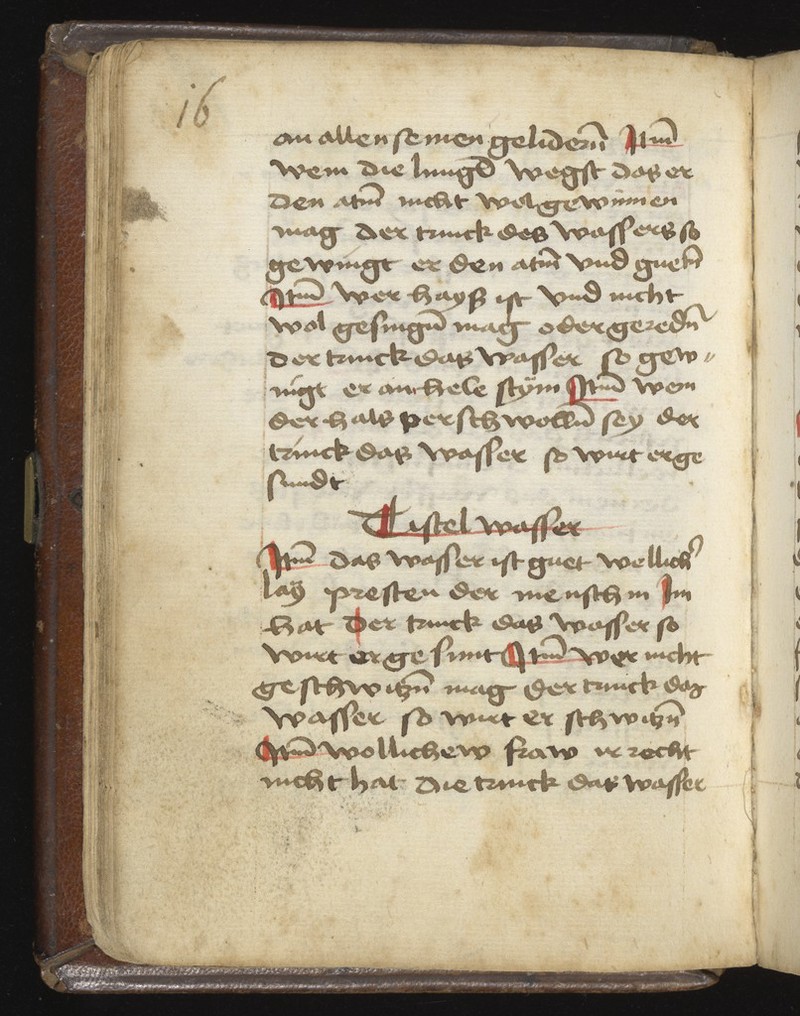 16
an allen seinen geliderñ Itm̃
wem die lung wegst das er
den atm̃ nicht wol gewinnen
mag der trinck des wassers so
gewingt er den atm̃ vnd guetñ
Itm̃ wer hayß ist vnd nicht
wol gesingñ mag oder geredñ
der trinck das wasser so gew〃
nigt er ain hele stÿm Itm̃ wem
der hals verschwollñ sey der
trinck das wasser so wirt er ge
sundt
Distel wasser
Itm̃ das wasser ist guet wellich̾
lay presten der mensch in Im
hat Der trinck das wasser so
wirt er gesunt Itm̃ wer nicht
geschwitzñ mag der trinck das
wasser so wirt er schwitzñ
Itm̃ wollichew fraw ir recht
nicht hat die trinck das wasser